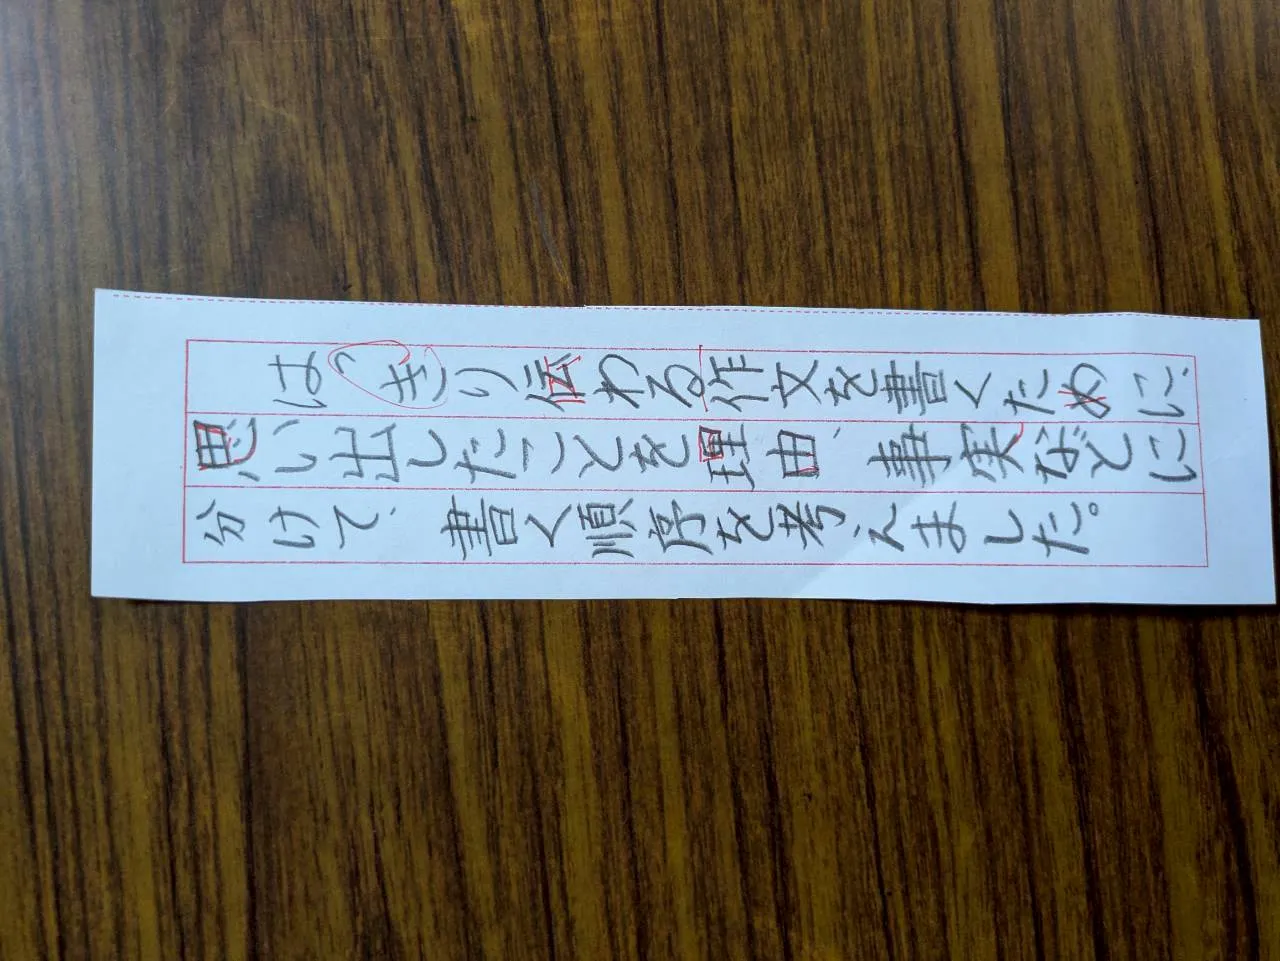 はっきり伝わる作文を書くために、
思い出したことを理由、事実などに
分けて、書く順序を考えました。